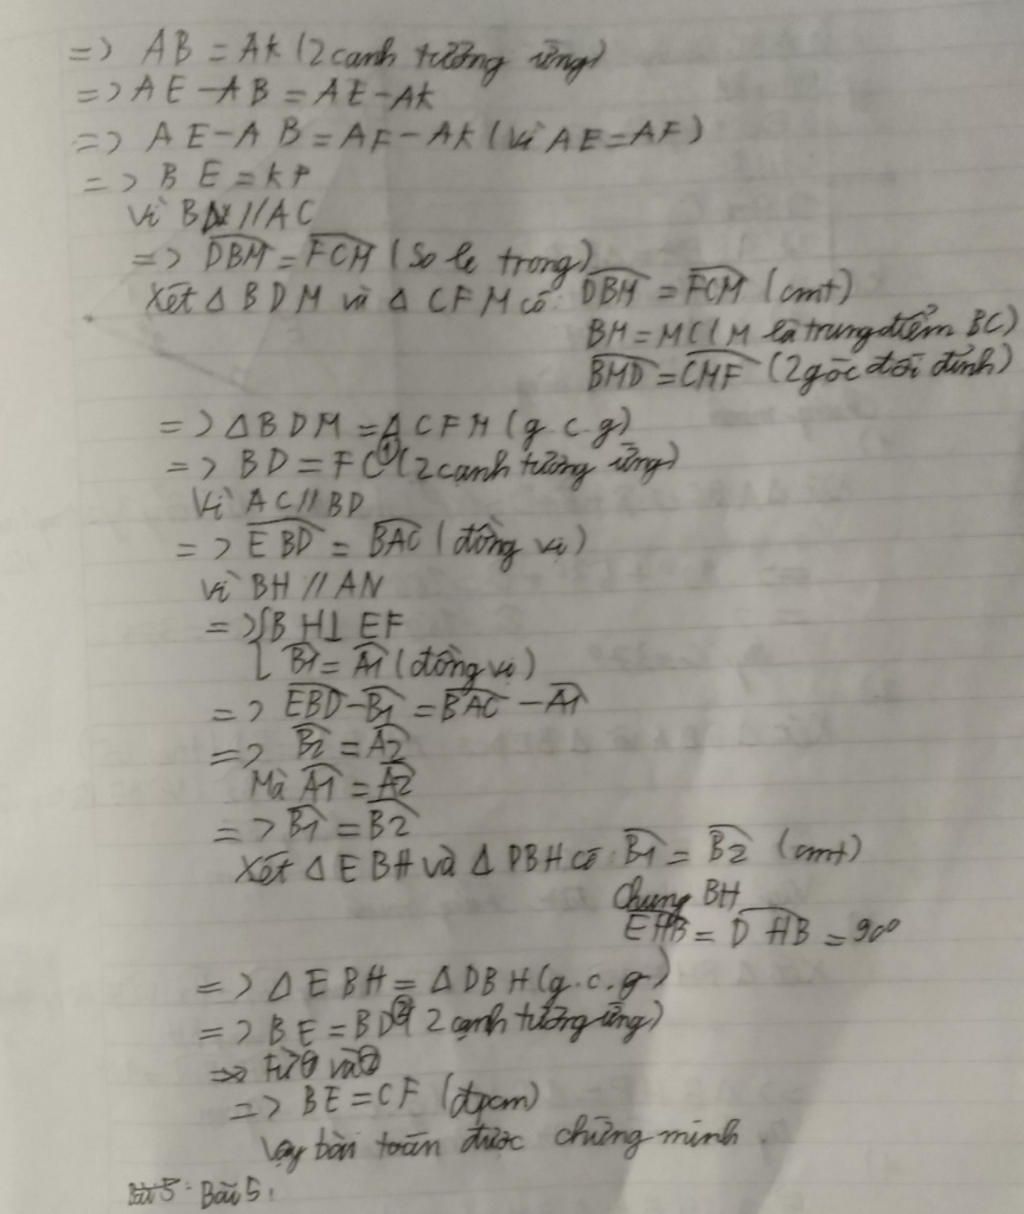 => AB = AK (2 cạnh tương ứng)
=> AE - AB = AE - AK
=> AE - AB = AF - AK (Vì AE = AF)
=> BE = KF
Vì BD // AC
=> DBM = FCM (So le trong)
Xét Δ BDM và Δ CFM có: DBM = FCM (cmt)
BM = MC (M là trung điểm BC)
BMD = CMF (2 góc đối đỉnh)
=> Δ BDM = Δ CFM (g.c.g)
=> BD = FC ① (2 cạnh tương ứng)
Vì AC // BD
=> EBD = BAC (đồng vị)
Vì BH // AN
=> { BH ⊥ EF
B1 = A1 (đồng vị)
=> EBD - B1 = BAC - A1
=> B2 = A2
Mà A1 = A2
=> B1 = B2
Xét Δ EBH và Δ DBH có: B1 = B2 (cmt)
Chung BH
EHB = DHB = 90°
=> Δ EBH = Δ DBH (g.c.g)
=> BE = BD ② (2 cạnh tương ứng)
=> Từ ① và ②
=> BE = CF (đpcm)
Vậy bài toán được chứng minh.
Bài 5: Bài 5: